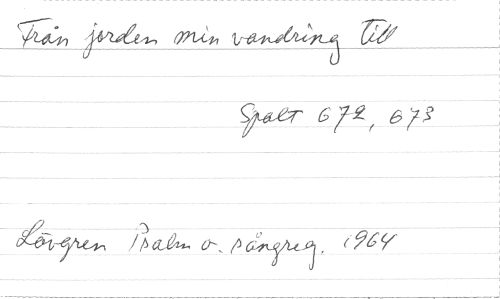 Från jorden min vandring till
Spalt 672, 673
Lövgren Psalm o. sångreg. 1964